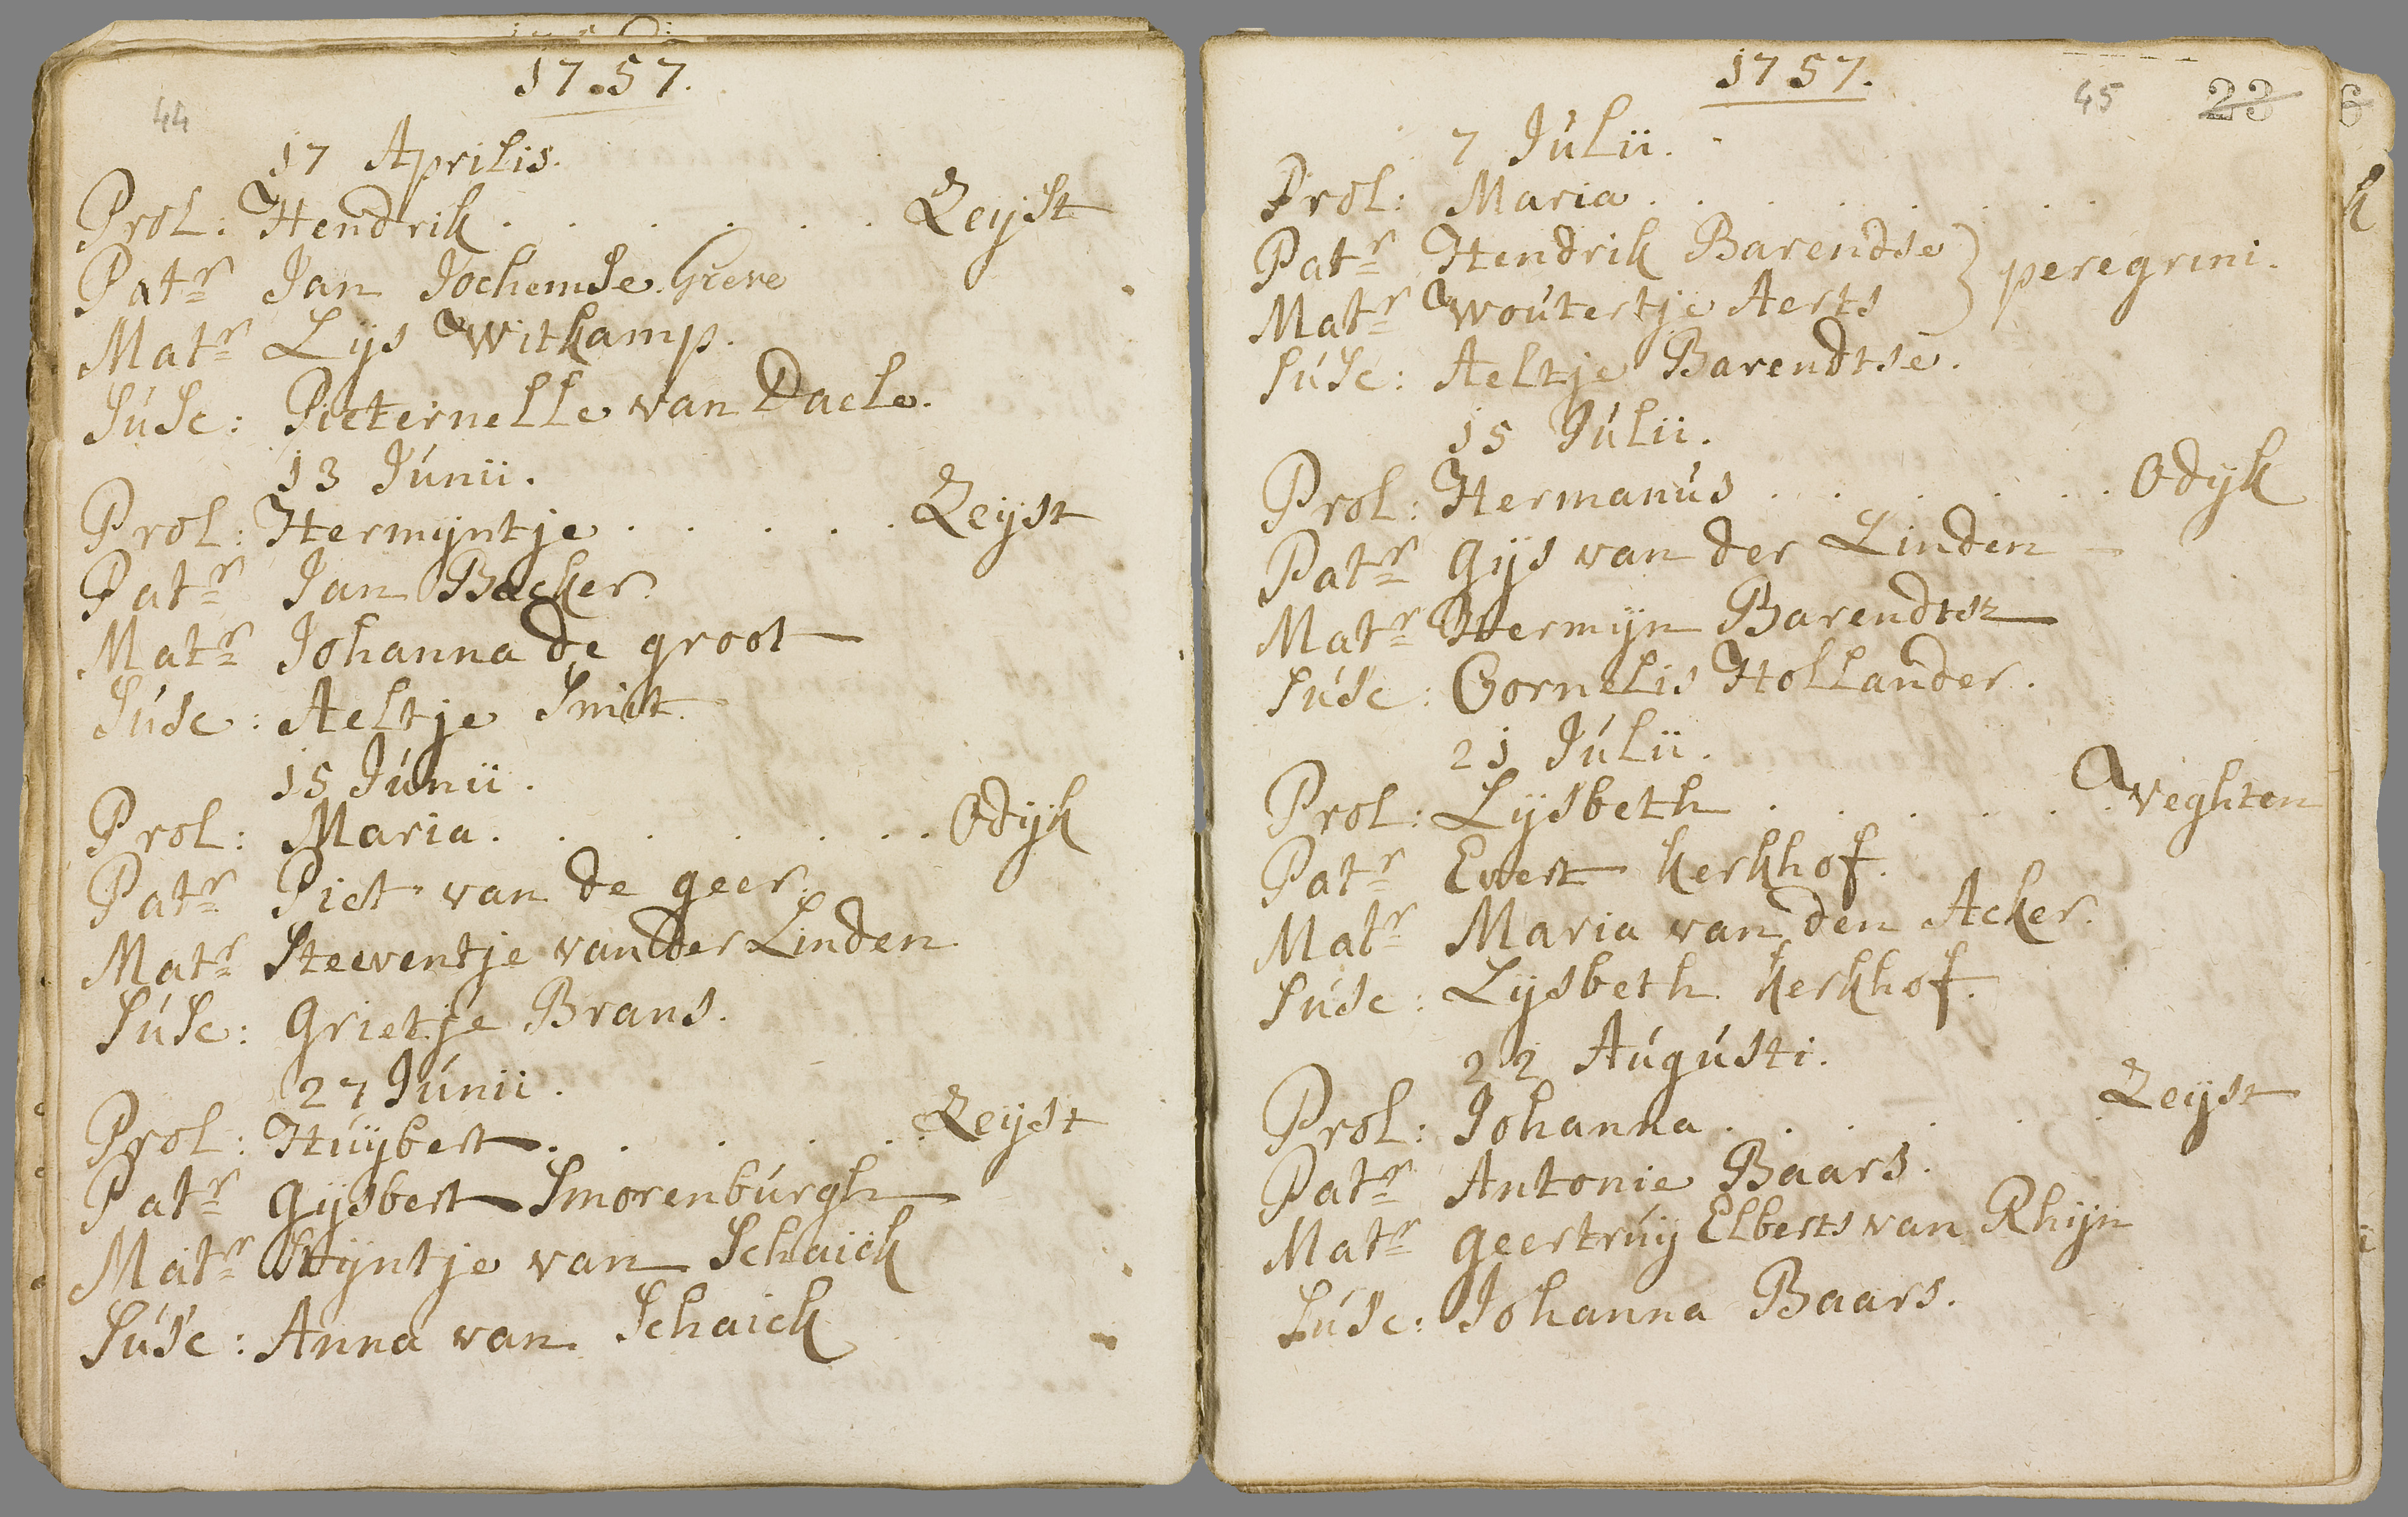 1757.
44
17 Aprilis.
Prol: Hendrik . . . . . . Zeijst
Patr Jan Jochemse Greve
Matr Lijs Witkamp.
Susc: Pieternelle van Daele.
13 Júnii.
Prol: Hermijntje . . . . . Zeijst
Patr Jan Backer
Matr Johanna de groot
Súsc: Aeltje Smit.
15 Júnii.
Prol: Maria . . . . . . . Odijk
Patr Piet van de geer.
Matr Steeventje van der Linden
Súsc: Grietje Brans.
27 Júnii.
Prol: Húijbert . . . . . . Zeijst
Patr Gijsbert Smorenbúrgh
Matr Wijntje van Schaick
Súsc: Anna van Schaick
1757.
45 23
7 Júlii.
Prol: Maria . . . . . . . .
Patr Hendrik Barendse } peregrini.
Matr Woútertje Aerts
Súsc: Aeltje Barendtse.
15 Júlii.
Prol: Hermanús . . . . . . Odijk
Patr Gijs van der Linden
Matr Hermijn Barendtsz
Súsc: Cornelis Hollander.
21 Júlii.
Prol: Lijsbeth . . . . . . Weghten
Patr Evert Kerkhof.
Matr Maria van den Acker.
Súsc: Lijsbeth Kerkhof.
22 Aúgústi.
Prol: Johanna . . . . . . Zeijst
Patr Antonie Baars.
Matr Geertrúij Elberts van Rhijn
Súsc: Johanna Baars.